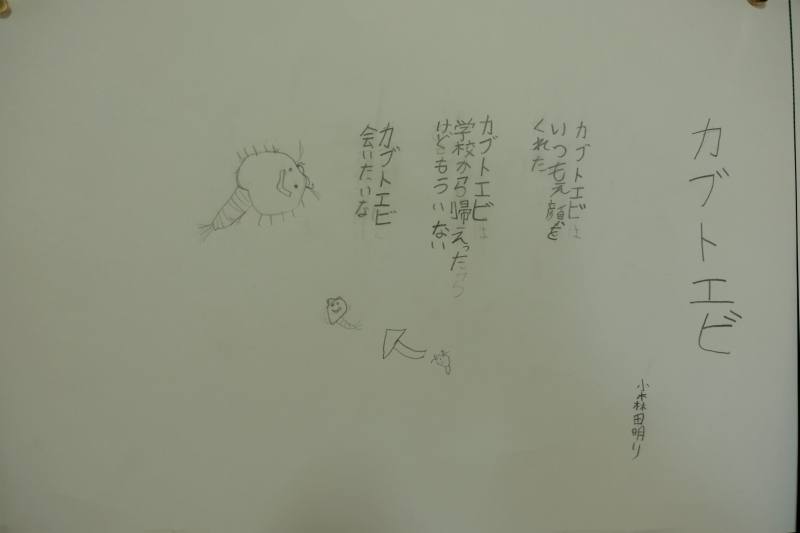 カブトエビ
小森田明り
カブトエビは
いつもえ顔を
くれた
カブトエビは
学校から帰えったら
けどもういない
カブトエビ
会いたいな